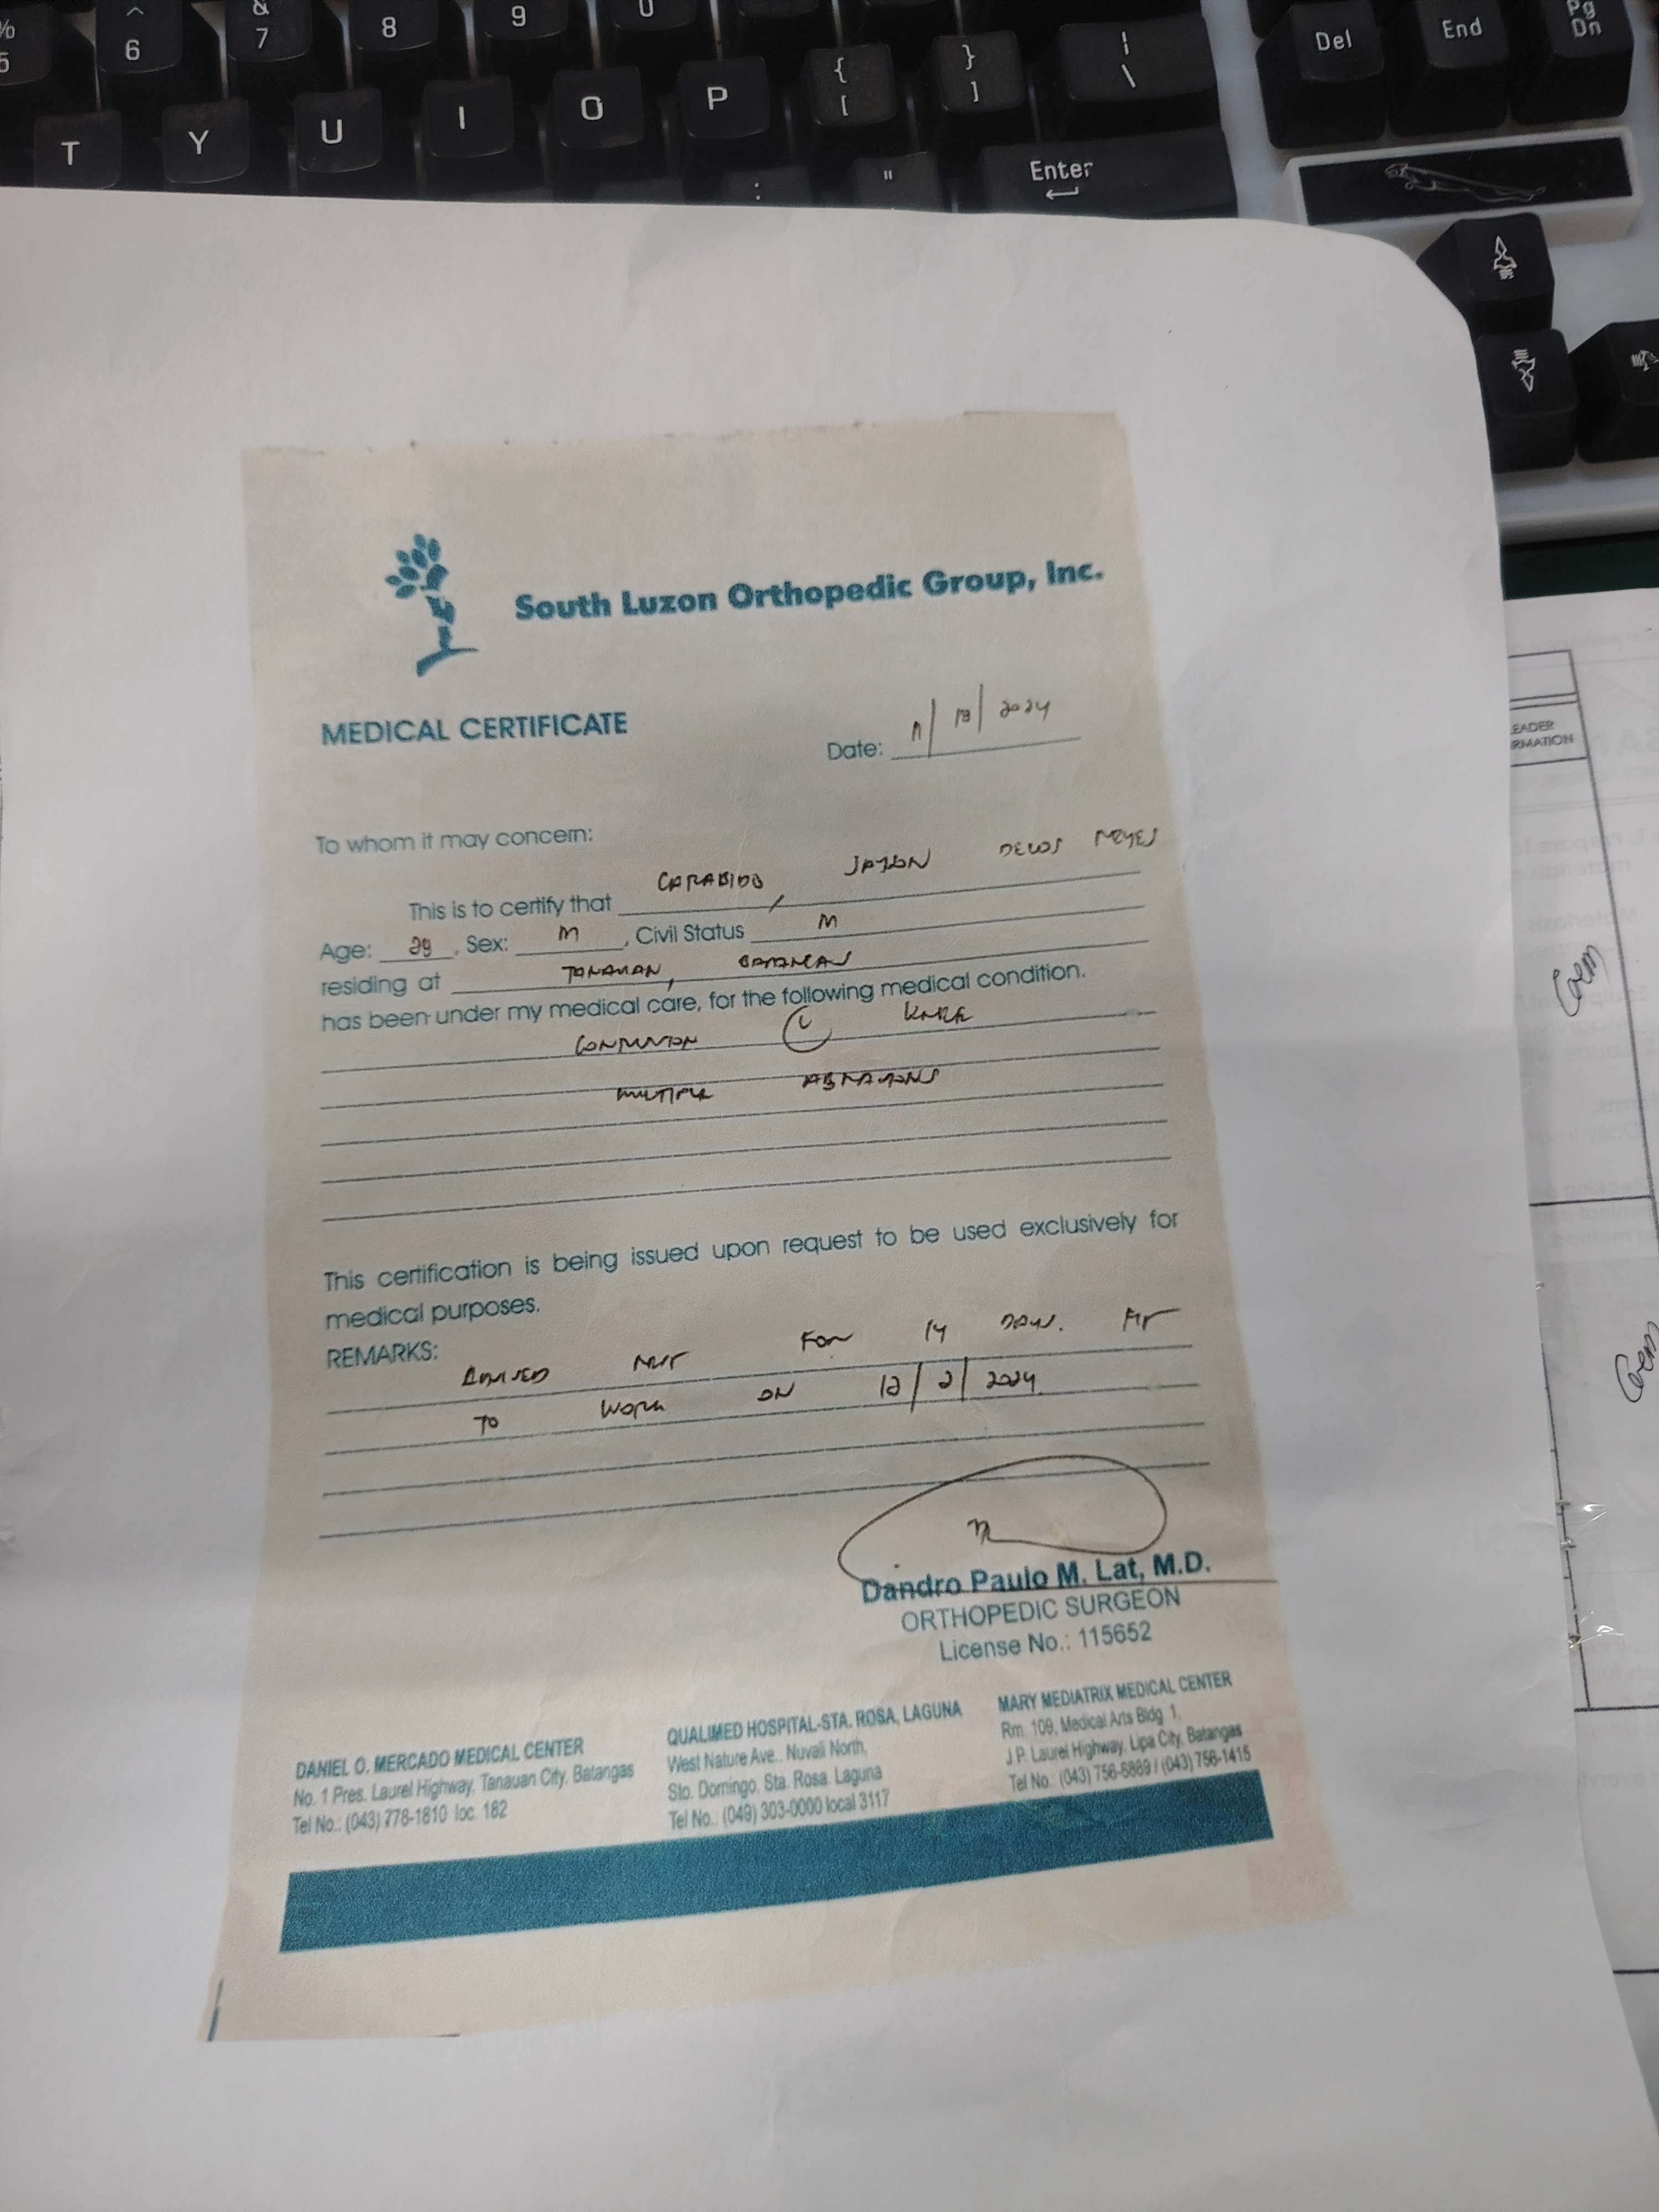 % 5
^ 6
& 7
8
9
0
T
Y
U
I
O
P
{ [
} ]
| \
:
"
Enter
Del
End
Pg Dn
South Luzon Orthopedic Group, Inc.
MEDICAL CERTIFICATE
Date: 11/18/2024
To whom it may concern:
This is to certify that CARABIDO, JAYSON DELOS REYES
Age: 29, Sex: M, Civil Status M
residing at TANAUAN, BATANGAS
has been under my medical care, for the following medical condition.
CONTUSION (L) KNEE
MULTIPLE ABRASIONS
This certification is being issued upon request to be used exclusively for
medical purposes.
REMARKS:
ADVISED REST FOR 14 DAYS. FIT
TO WORK ON 12/2/2024
Dandro Paulo M. Lat, M.D.
ORTHOPEDIC SURGEON
License No.: 115652
DANIEL O. MERCADO MEDICAL CENTER
No. 1 Pres. Laurel Highway, Tanauan City, Batangas
Tel No.: (043) 778-1810 loc. 182
QUALIMED HOSPITAL-STA. ROSA, LAGUNA
West Nature Ave., Nuvali North,
Sto. Domingo, Sta. Rosa, Laguna
Tel No.: (049) 303-0000 local 3117
MARY MEDIATRIX MEDICAL CENTER
Rm. 109, Medical Arts Bldg 1,
J.P. Laurel Highway, Lipa City, Batangas
Tel No.: (043) 756-6889 / (043) 756-1415
EADER
RMATION